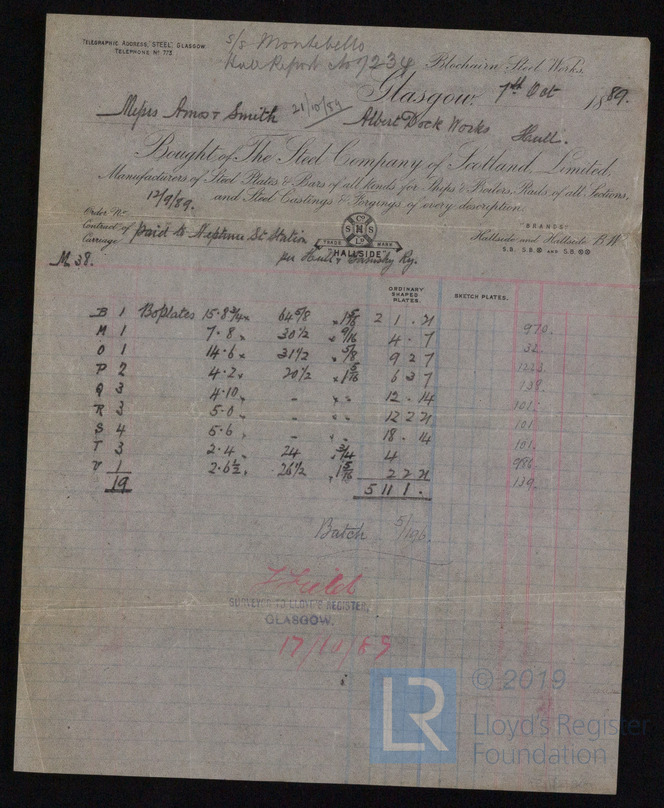 TELEGRAPHIC ADDRESS, "STEEL", GLASGOW
TELEPHONE No 773
S/S Montebello
Hull Report No 7234
Blochairn Steel Works,
Glasgow, 7th Oct 1889.
Messrs Amos & Smith 21/10/89 Albert Dock Works Hull.
Bought of The Steel Company of Scotland, Limited,
Manufacturers of Steel Plates & Bars of all kinds for Ships & Boilers, Rails of all Sections,
and Steel Castings & Forgings of every description.
12/9/89.
Order No
Contract of
Carriage paid to Neptune St Station
per Hull & Ry.
Co
S N S
Ld
TRADE MARK
"HALLSIDE"
"BRANDS"
Hallside and Hallside B.W.
S.B. S.B⊗ AND S.B.⊗⊗
M 38.
ORDINARY SHAPED PLATES.
SKETCH PLATES.
B 1 Bo Plates 15.8 3/4 x 64 5/8 x 1 5/16 2 1 . 21 970.
M 1 7.8 " 30 1/2 x 9/16 4 . 7 32.
O 1 14.6 " 31 1/2 x 5/8 9 2 7 1223.
P 2 4.2 " 20 1/2 x 1 5/16 6 3 7 938.
Q 3 4.10 " - " " 12 . 14 101.
R 3 5.0 " - " " 12 2 21 101
S 4 5.6 " - " " 18 . 14 101.
T 3 2.4 " 24 " 3/4 4 986.
V 1 2.6 1/2 " 26 1/2 " 1 5/16 2 2 21 139.
19 5 11 1 .
Batch 5/196
SURVEYOR TO LLOYD'S REGISTER,
GLASGOW.
17/10/89
LR
© 2019
Lloyd's Register
Foundation